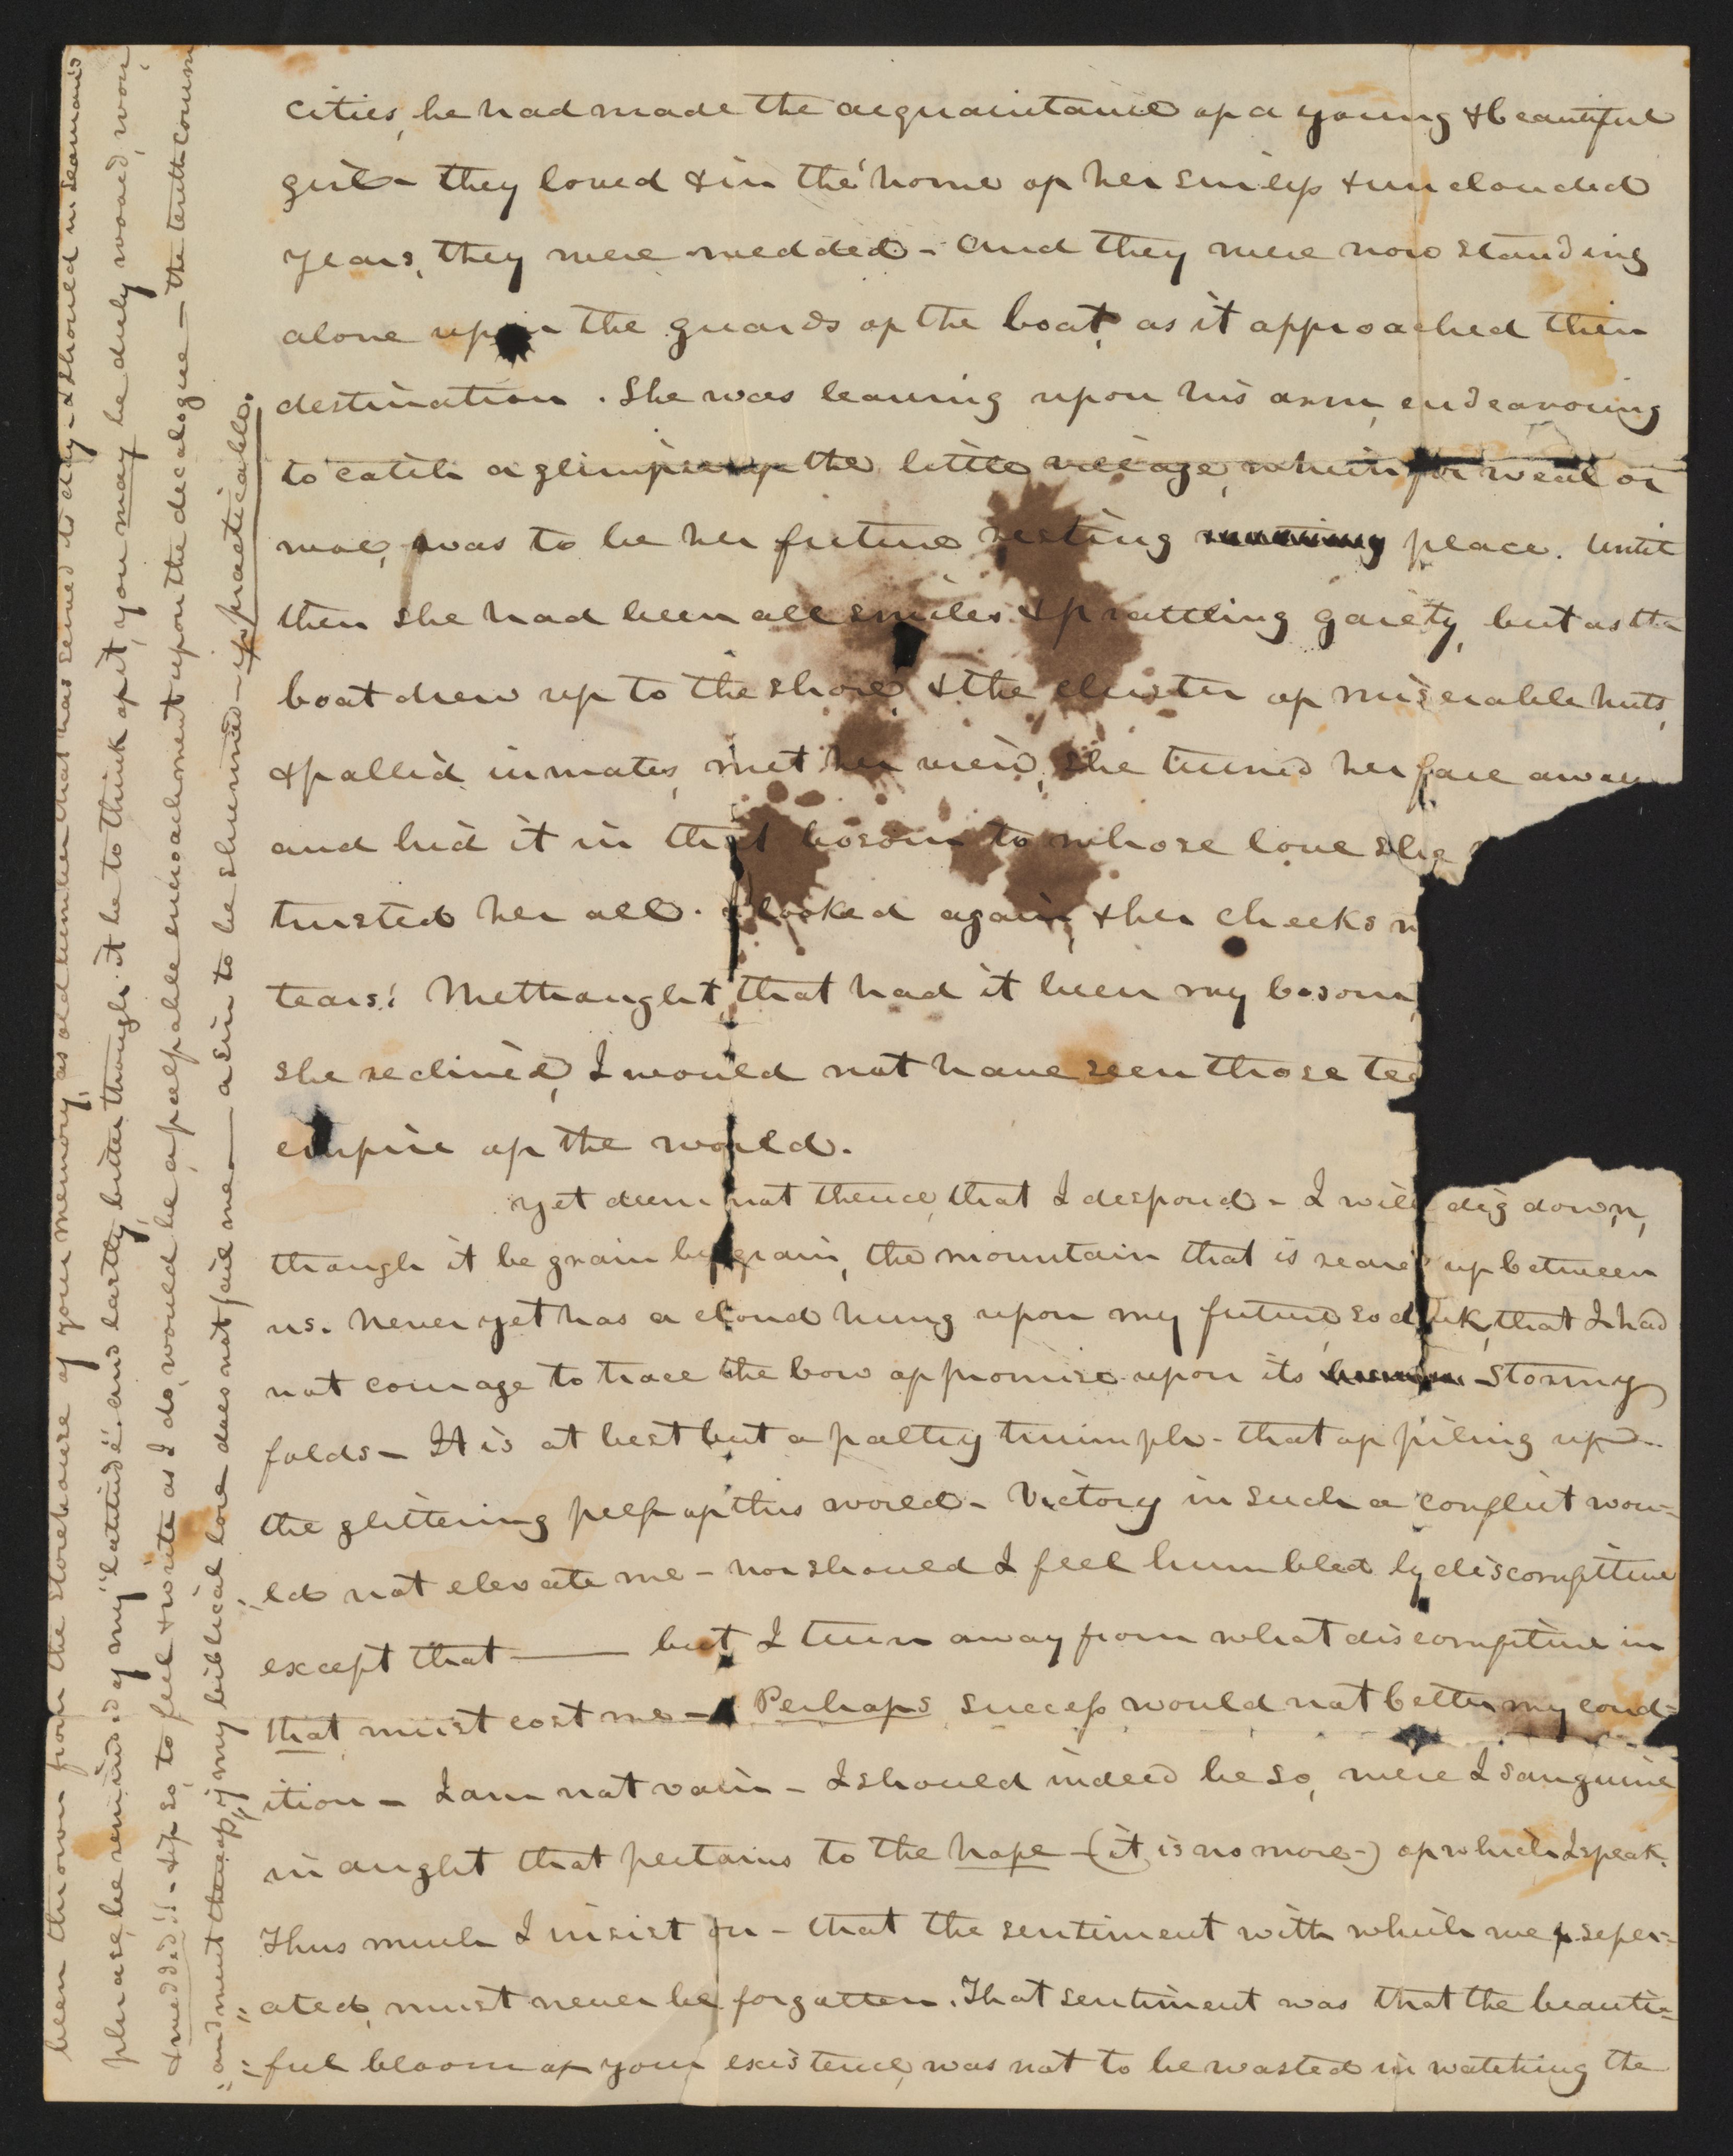 cities, he had made the acquaintance of a young & beautiful
girl - they loved & in the home of her sinless & unclouded
years, they were wedded - And they were now standing
alone upon the guards of the boat, as it approached their
destination. She was leaning upon his arm, endeavoring
to catch a glimpse of the little village, wherein for weal or
woe, was to be her future resting place. Until
then she had been all smiles & prattling gaiety, but as the
boat drew up to the shore, & the cluster of miserable huts,
& pallid inmates, met her view, she turned her face away
and hid it in that bosom to whose love she
trusted her all. I looked again, & her cheeks
tears! Methought, that had it been my bosom,
she reclined, I would not have seen those
empire of the world.
Yet deem not thence, that I despond - I will dig down,
though it be grain by grain, the mountain that is reared up between
us. Never yet has a cloud hung upon my future, so dark, that I had
not courage to trace the bow of promise upon its stormy
folds - It is at best but a paltry triumph - that of piling up -
the glittering pelf of this world - Victory in such a conflict wou-
-ld not elevate me - nor should I feel humbled by discomfiture
except that —— but I turn away from what discomfiture in
that must cost me - Perhaps success would not better my cond-
ition - I am not vain - I should indeed be so, were I sanguine
in aught that pertains to the hope - (it is no more -) of which I speak.
Thus much I insist on - that the sentiment with which we seper-
-ated, must never be forgotten. That sentiment was that the beauti-
-ful bloom of your existence, was not to be wasted in watching the
been thrown from the storehouse of your memory, as old lumber that has served to day - & should in
please be reminded of my "latitude". and lastly, bitter though it be to think of it, you may be duly wooed, won,
& wedded!! - & if so, to feel & write as I do, would be a palpable encroachment upon the decalogue — the tenth comm-
"andment thereof, if my biblical lore does not fail me — a sin to be shunned - if practicable.